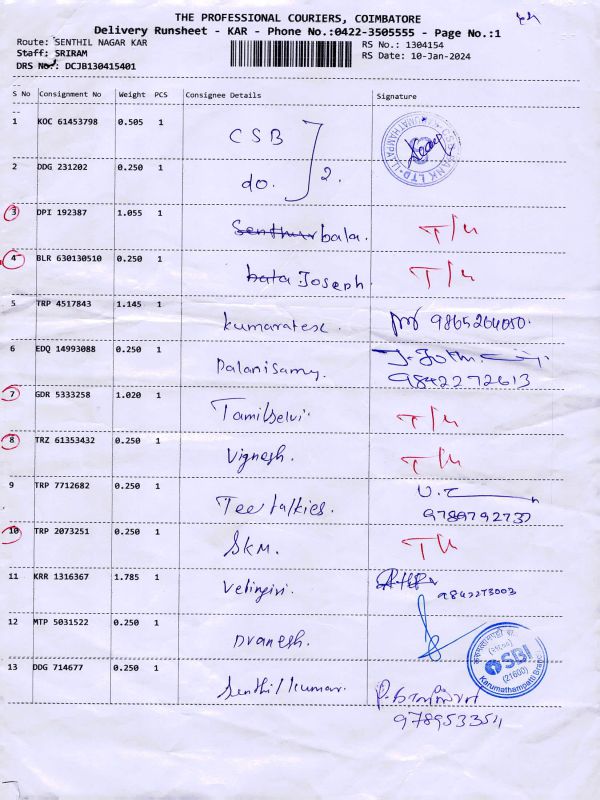 THE PROFESSIONAL COURIERS, COIMBATORE
Delivery Runsheet - KAR - Phone No.:0422-3505555 - Page No.:1
Route: SENTHIL NAGAR KAR
RS No.: 1304154
Staff: SRIRAM
RS Date: 10-Jan-2024
DRS No.: DCJB130415401
S No Consignment No Weight PCS Consignee Details Signature
1 KOC 61453798 0.505 1 CSB
2 DDG 231202 0.250 1 do. 2.
3 DPI 192387 1.055 1 Senthur bala. T/H
4 BLR 630130510 0.250 1 bala Joseph. T/H
5 TRP 4517843 1.145 1 Kumaratese. 9865264050.
6 EDQ 14993088 0.250 1 Palanisamy. 9842272613
7 GDR 5333258 1.020 1 Tamilselvi. T/H
8 TRZ 61353432 0.250 1 Vignesh. T/H
9 TRP 7712682 0.250 1 Tee talkies. 9789792737
10 TRP 2073251 0.250 1 SKM. T/H
11 KRR 1316367 1.785 1 Velingiri. 9842273003
12 MTP 5031522 0.250 1 Pranesh.
SBI
(21600)
Karumathampatti Branch
13 DDG 714677 0.250 1 Senthil kumar.
9789533511